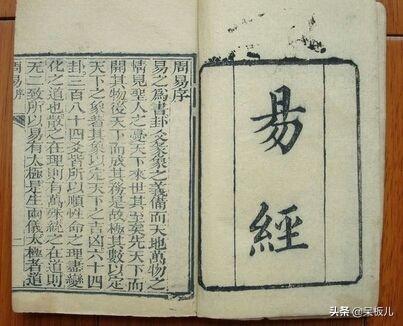 易經
周易序
易之為書卦爻彖象之義備而天地萬物之
情見聖人之憂天下來世其至矣先天下而
開其物後天下而成其務是故極其數以定
天下之象著其象以定天下之吉凶六十四
卦三百八十四爻皆所以順性命之理盡變
化之道也散之在理則有萬殊統之在道則
无二致所以易有太極是生兩儀太極者道
周易序
头条 @呆板儿